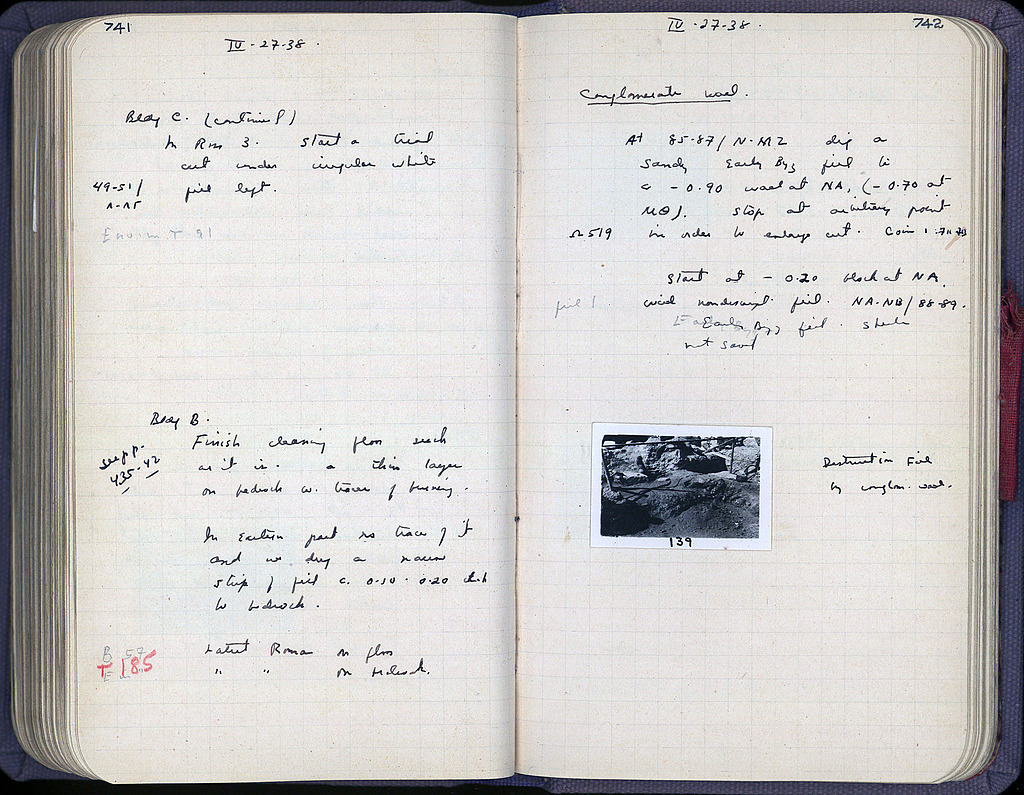 741
IV-27-38.
Bldg C. (continued)
In Rm 3. Start a trial
cut under irregular white
49-51/ fill left.
Bldg B.
see pp. 435-42
Finish cleaning floor such
as it is. a thin layer
on bedrock w. traces of burning.
In Eastern part no trace of it
and we dug a narrow
strip of fill c. 0.10-0.20 thick
to bedrock.
Latest Roman on floor
" " on bedrock.
T 185
IV-27-38.
742
Conglomerate wall.
At 85-87/ dig a
Sandy Early Byz fill to
c -0.90 wall at NA, (-0.70 at
MΘ). Stop at arbitrary point
Ω519 in order to enlarge cut. Coin 1.
Start at -0.20 block at NA.
nondescript fill. NA-NB/88-89.
Early Byz fill. Sherds
not saved
Destruction Fill
by conglom. wall.
139